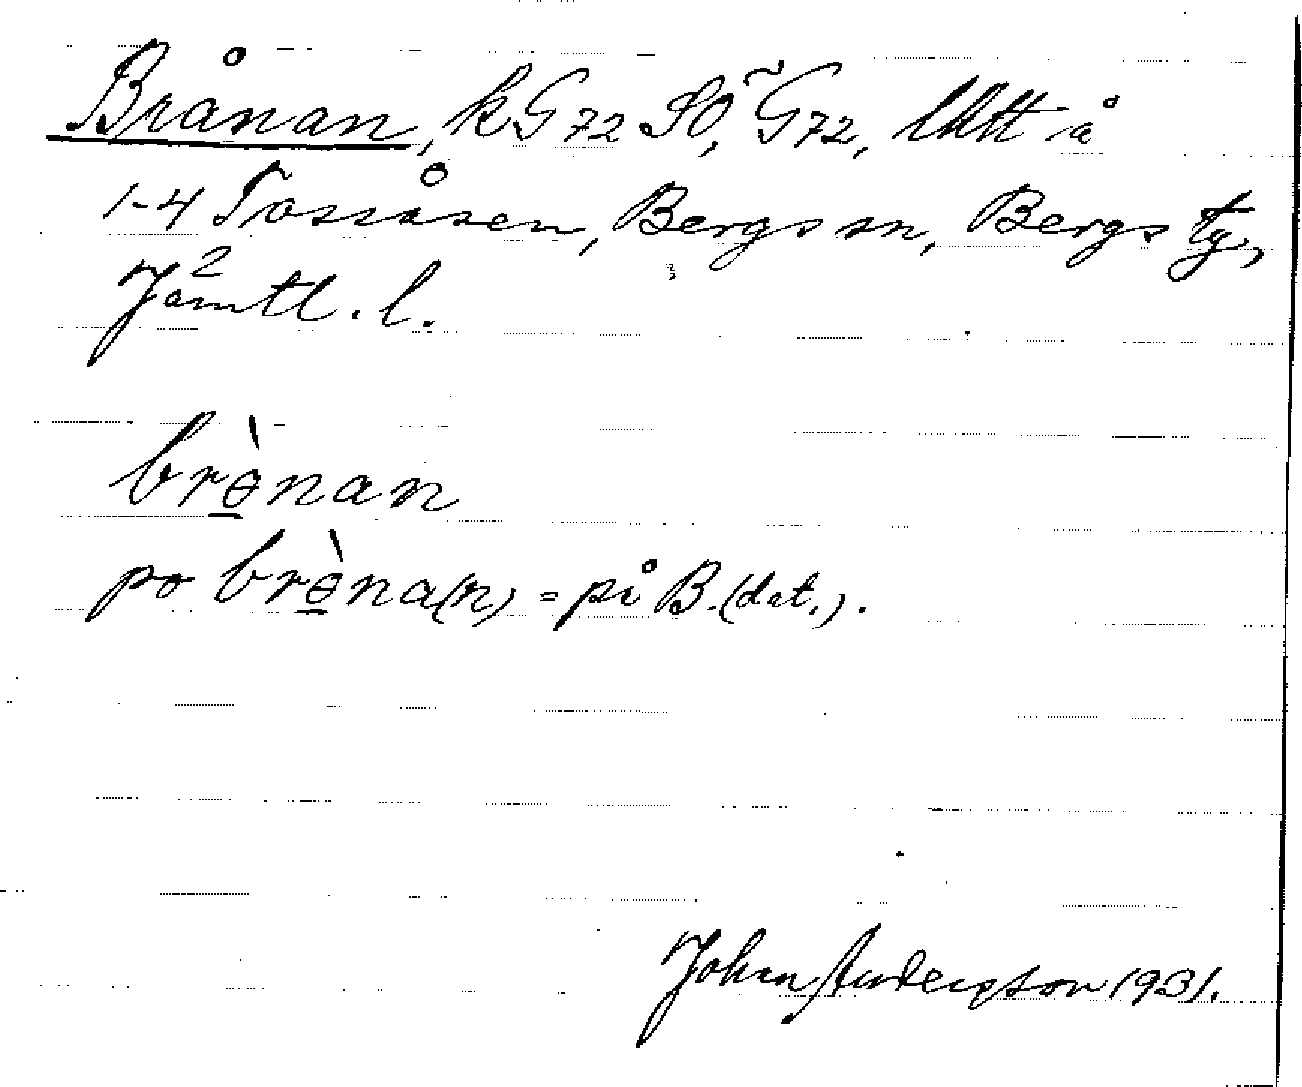 Brånan, k G72 SO, G72, lätt å
1-4 Tossåsen, Bergs sn, Bergs tg,
Jämtl. l.
brə̀nan
po brə̀na(n) = på B. (dat.).
Johan Andersson 1931.